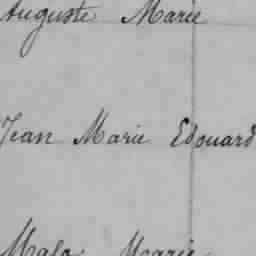 Auguste Marie
Jean Marie Edouard
Malo Marie